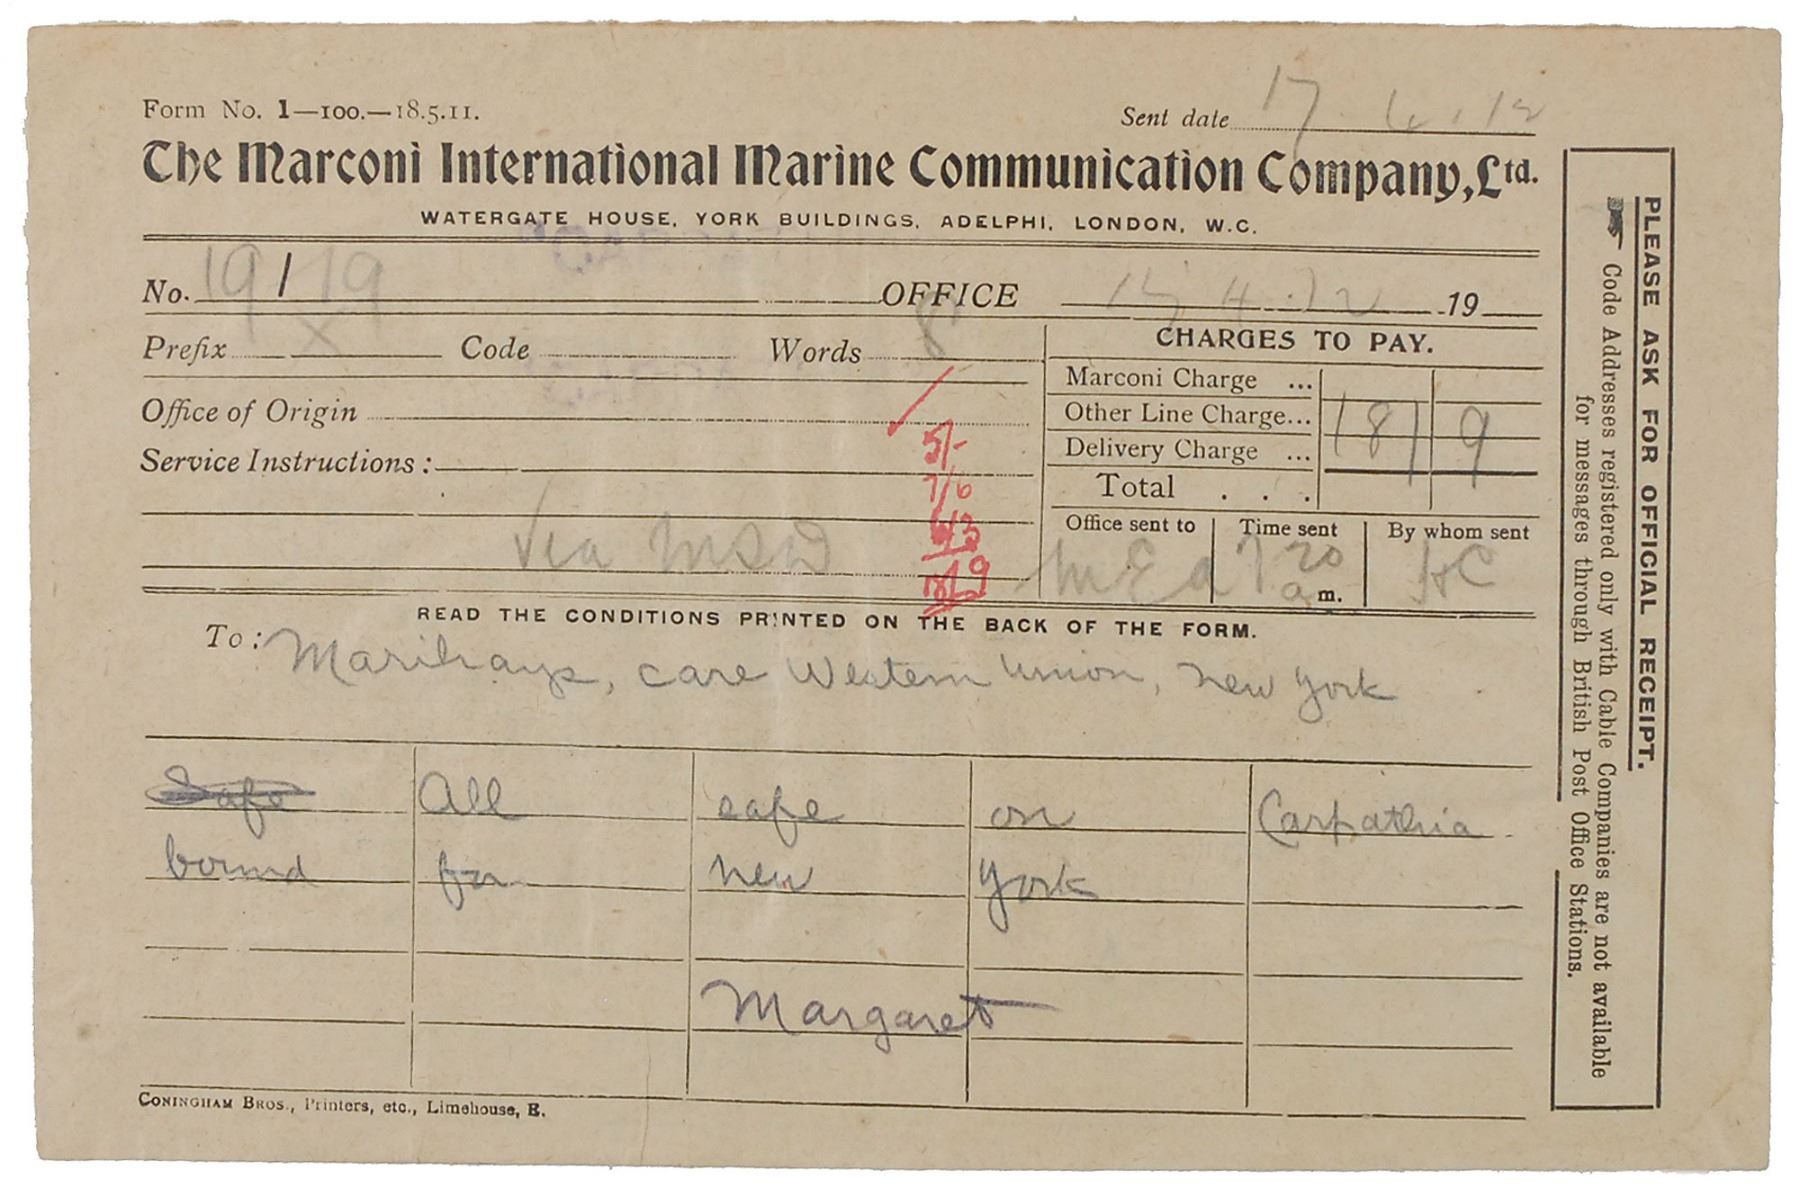 Form No. 1—100.—18.5.11.
Sent date 17.4.12
The Marconi International Marine Communication Company, Ltd.
WATERGATE HOUSE, YORK BUILDINGS, ADELPHI, LONDON, W.C.
No. 19/19 OFFICE 4.12 19
Prefix X Code Words 8
CHARGES TO PAY.
Marconi Charge ...
Office of Origin
Other Line Charge... 18/9
Delivery Charge ...
Service Instructions :
5/-
7/6
6/3
18/9
Total . . .
Via MSD
Office sent to Time sent By whom sent
MEA 7 20 a m. HC
READ THE CONDITIONS PRINTED ON THE BACK OF THE FORM.
To: Marihays, care Western Union, New York
Safe All safe on Carpathia
bound for New York
Margaret
CONINGHAM BROS., Printers, etc., Limehouse, E.
PLEASE ASK FOR OFFICIAL RECEIPT.
☛ Code Addresses registered only with Cable Companies are not available
for messages through British Post Office Stations.